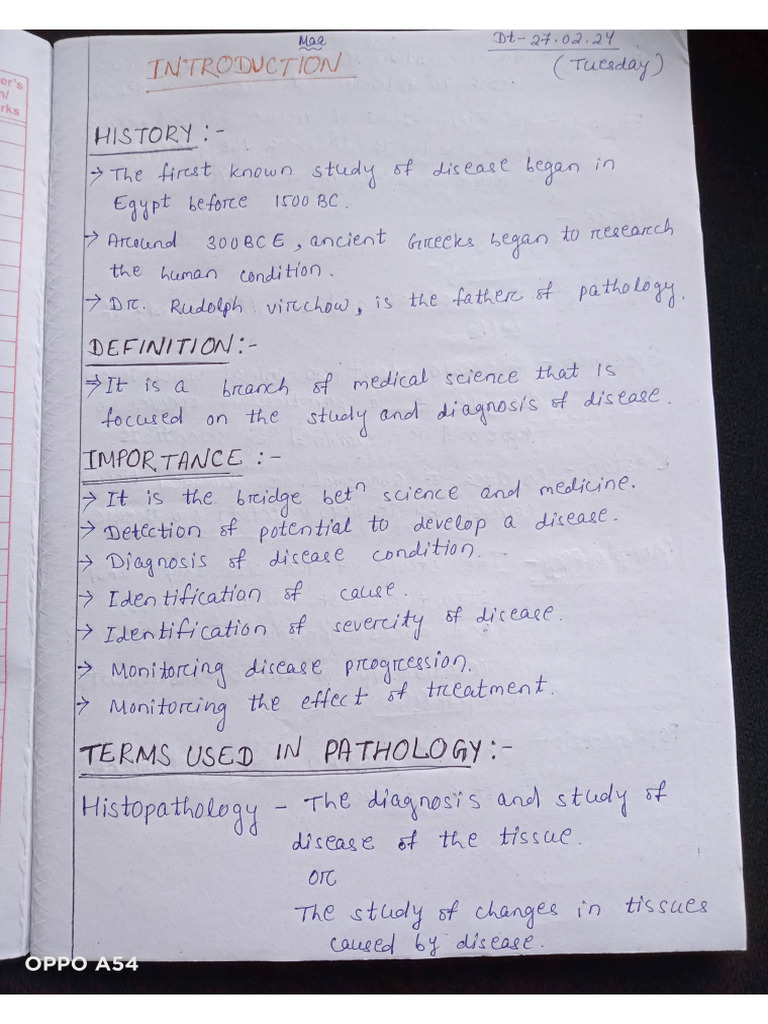 er's
n/
rks
Maa
Dt-27.02.24
INTRODUCTION
(Tuesday)
HISTORY :-
→ The first known study of disease began in
Egypt before 1500 BC.
→ Around 300BCE, ancient Greeks began to research
the human condition.
→ Dr. Rudolph virchow, is the father of pathology.
DEFINITION :-
→ It is a branch of medical science that is
focused on the study and diagnosis of disease.
IMPORTANCE :-
→ It is the bridge betⁿ science and medicine.
→ Detection of potential to develop a disease.
→ Diagnosis of disease condition.
→ Identification of cause.
→ Identification of severity of disease.
→ Monitoring disease progression.
→ Monitoring the effect of treatment.
TERMS USED IN PATHOLOGY :-
Histopathology - The diagnosis and study of
disease of the tissue.
or
The study of changes in tissues
caused by disease.
OPPO A54